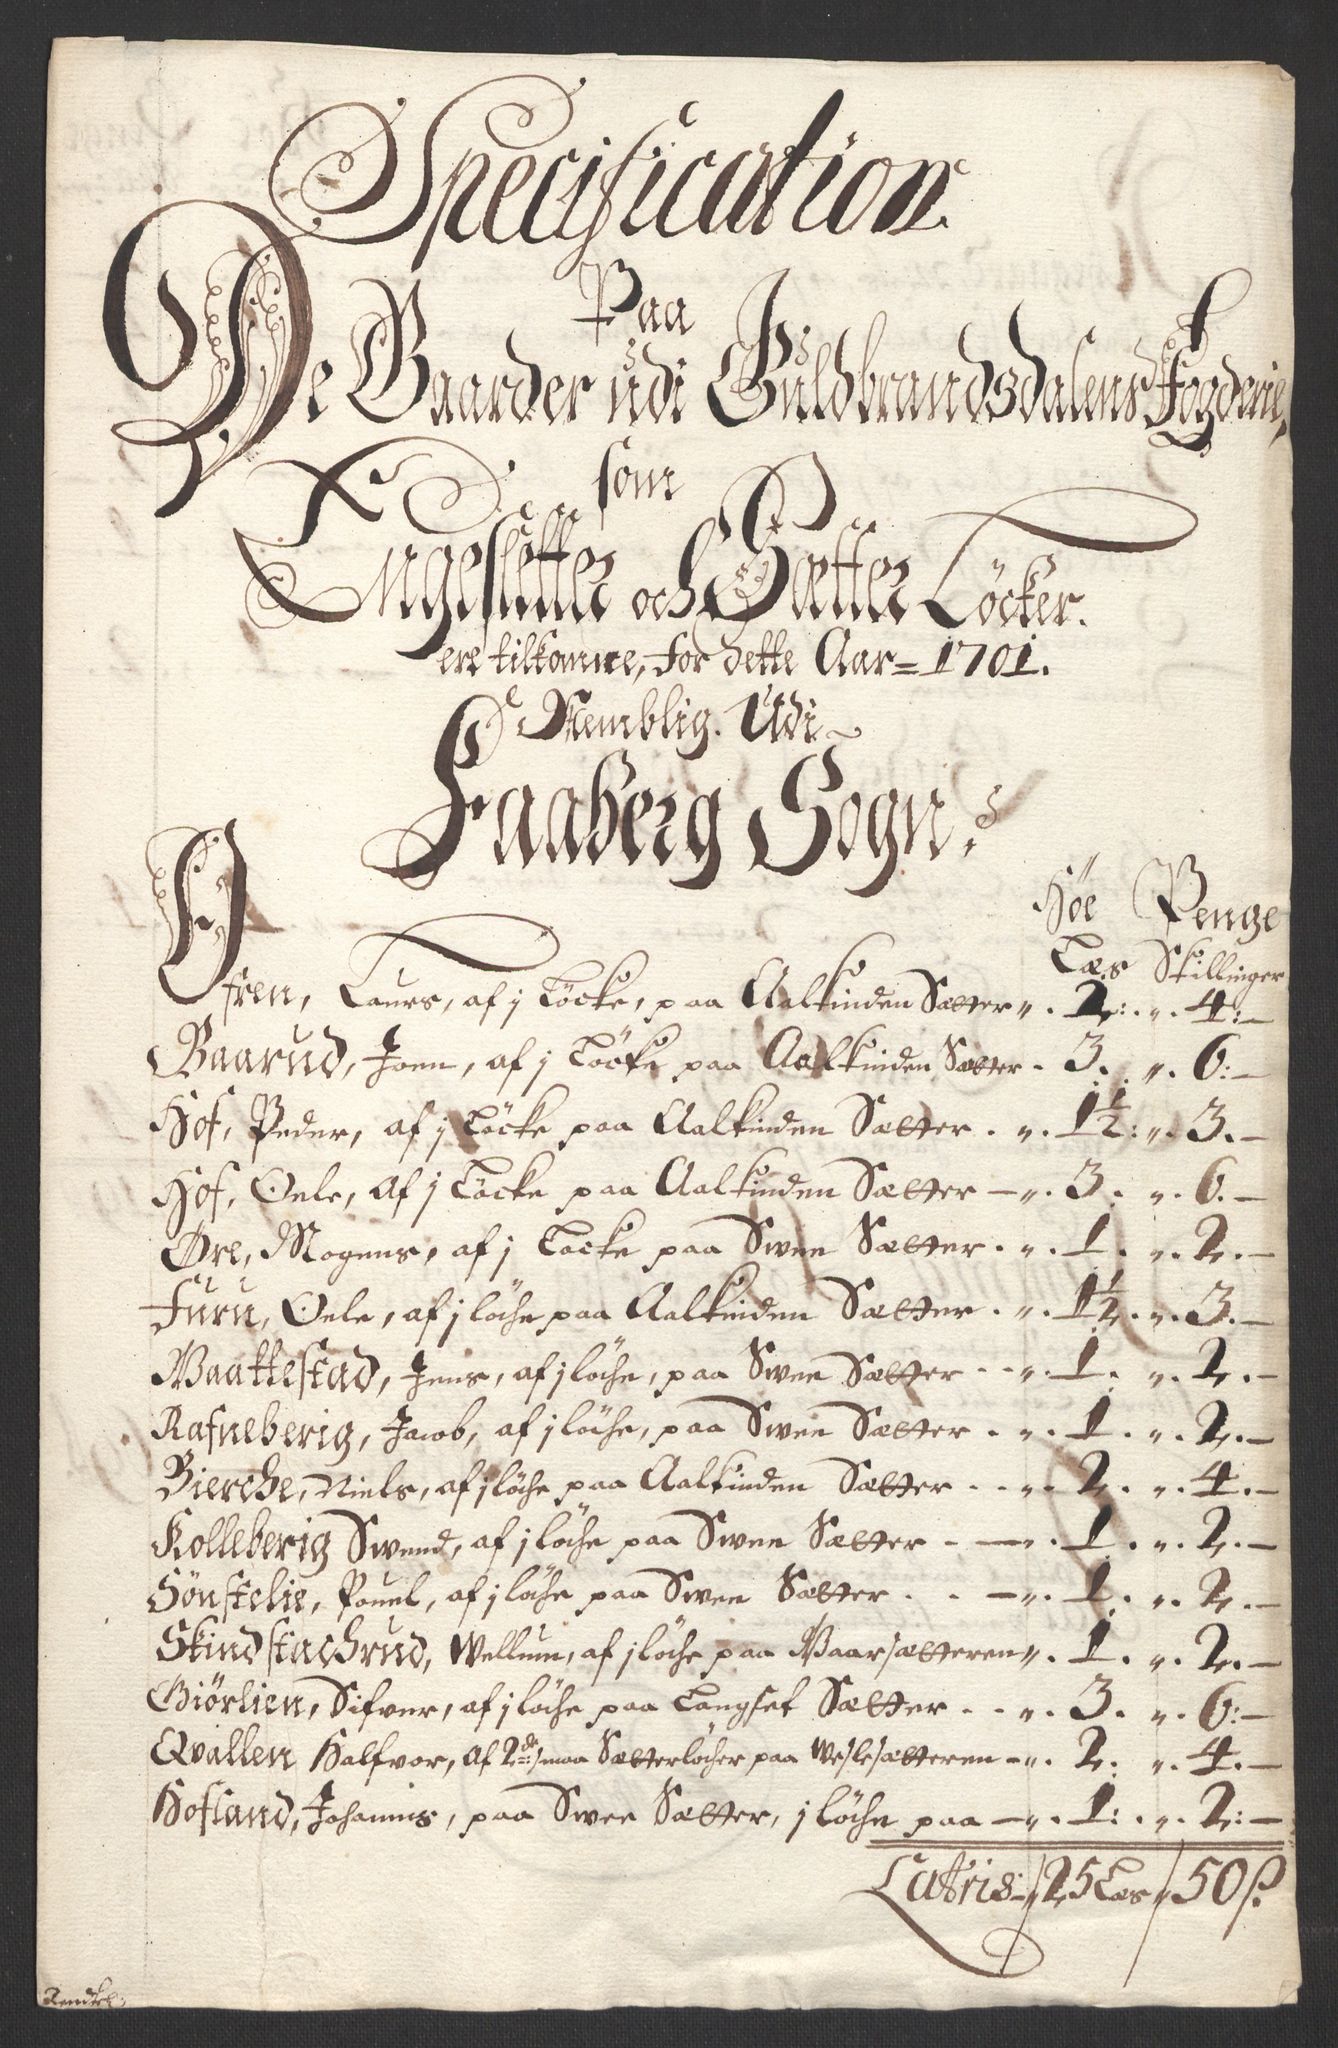 Specification
Paa
De Gaarder udi Guldbrandsdalens Fogderie,
som
Engesletter och Sætter Löcker.
ere tilkomne, for dette Aar = 1701.
Nemblig. Udi
Faaberg Sogn:
Höe Penge
Læs Skillinger
Laurs, af j Löcke, paa Aalkinden Sætter „. 2: „. 4:
Baarud, Joen, af j Löcke paa Aalkinden Sætter . 3. „. 6:
Hof, Peder, af j Löcke paa Aalkinden Sætter . „. 1½: „. 3.
Hof, Oele, af j Löcke paa Aalkinden Sætter „. 3. „. 6.
Øre, Mogens, af j Löcke paa Swee Sætter . „. 1. „. 2.
Furu, Oele, af j löche paa Aalkinden Sætter . „. 1½. „. 3.
Baattestad, Jens, af j löche, paa Swee Sætter . . „. 1. „. 2.
Rafneberig, Jacob, af j löche, paa Swee Sætter . „. 1. „. 2.
Bierche, Niels, af j löche paa Aalkinden Sætter . . „. 2. „. 4.
Kolleberig Swend, af j löche paa Swee Sætter . „. 1. „. 2.
Sönstelie, Pouel, af j löche paa Swee Sætter . . „. 1. „. 2.
Skindstachrud, Wellum, af j löche paa Baarsætteren „. 1. „. 2.
Giörlien, Sifver, af j löche paa Langset Sætter . . „. 3. „. 6:
Qvallen Halfvor, af 2de smaa Sætterlöcher paa Weslesætteren „. 2: „. 4.
Hofland, Johannis, paa Swee Sætter, j löche paa „. 1: . „. 2:
Latris / 25 Læs / 50 ß.